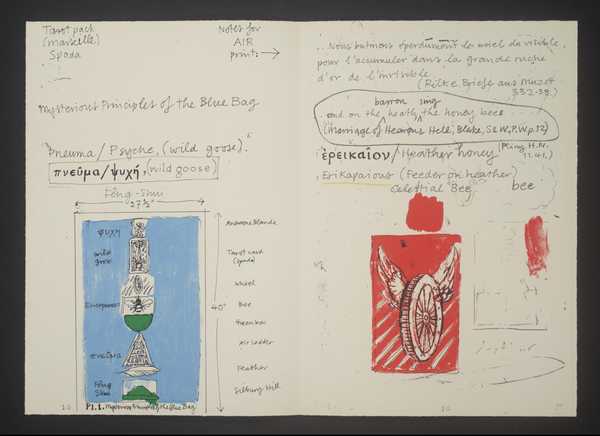 Tarot pack
(marseille)
Spada
Notes for
AIR
prints →
Mysterious Principles of the Blue Bag
"Pneuma/Psyche, (wild goose)."
πνεῦμα/ψυχή, (wild goose)
Fêng-Shui
27½"
ψυχή
wild
goose
πνεῦμα
Fêng
Shui
Tarot card
(spada)
wheel
Bee
40"
Air ladder
Feather
Silbury Hill
Pl.1. Mysterious Principles of the Blue Bag
Nous butinons éperdument le miel du visible,
pour l'accumuler dans la grande ruche
d'or de l'invisible.
(Rilke Briefe aus Muzot
332-38.)
barron sing
and on the heath, the honey bees
(Marriage of Heaven & Hell, Blake, S.E.W,P.W.p.12)
ἐρεικαῖον/Heather honey (Pliny H.N.
11.41.)
Erikaparious (Feeder on heather)
Celestial "Bee" bee